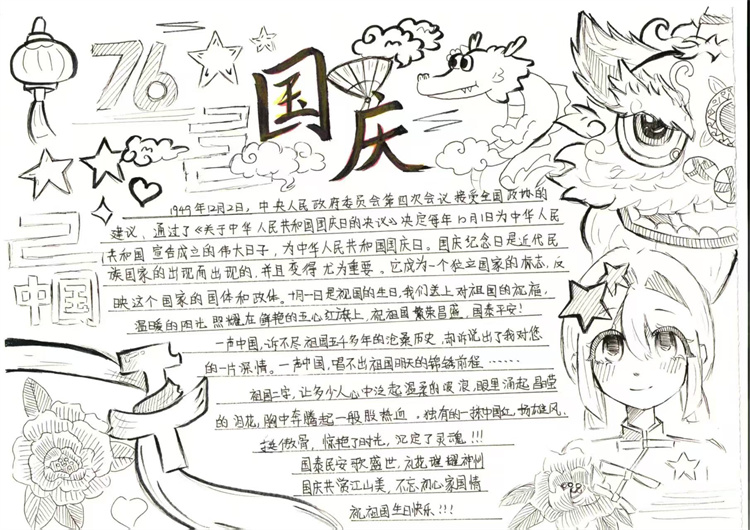 76
国庆
中国
1949年12月2日，中央人民政府委员会第四次会议接受全国政协的
建议，通过了《关于中华人民共和国国庆日的决议》决定每年10月1日为中华人民
共和国宣告成立的伟大日子，为中华人民共和国国庆日。国庆纪念日是近代民
族国家的出现而出现的，并且变得尤为重要。它成为一个独立国家的标志，反
映这个国家的国体和政体。十月一日是祖国的生日，我们送上对祖国的祝福，
温暖的阳光照耀在鲜艳的五心红旗上，祝祖国繁荣昌盛，国泰平安！
一声中国，诉不尽祖国五千多年的沧桑历史，却诉说出了我对您
的一片深情。一声中国，唱不出祖国明天的锦绣前程……
祖国二字，让多少人心中泛起温柔的波浪，眼里涌起晶莹
的泪花，胸中奔腾起一般股热血。独有的一抹中国红，扬雄风，
挺傲骨，惊艳了时光，沉定了灵魂!!!
国泰民安歌盛世，花璀璨耀神州
国庆共赏江山美，不忘初心家国情
祝祖国生日快乐!!!